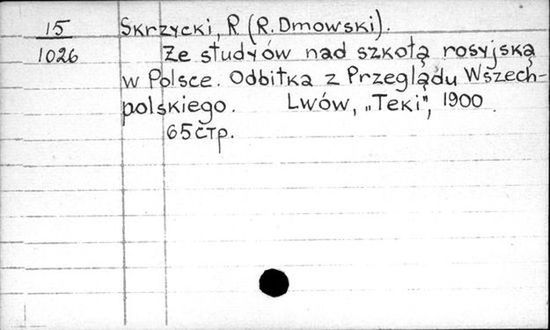 15 Skrzycki, R. (R. Dmowski).
1026 Ze studyów nad szkołą rosyjską
w Polsce. Odbitka z Przeglądu Wszech-
polskiego. Lwów, „Teki", 1900
65 стр.